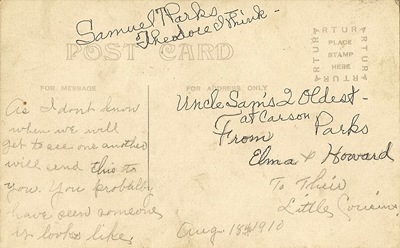 Samuel Parks
Theodore I Think -
POST CARD
ARTURA
ARTURA
PLACE
STAMP
HERE
ARTURA
ARTURA
FOR MESSAGE
FOR ADDRESS ONLY
As I dont know
when we will
get to see one another
will send this to
you. You probablly
have seen someone
it looks like.
Uncle Sam's 2 Oldest -
at Carson
From Parks
Elma & Howard
To Their
Little Cousins
Aug. 1910